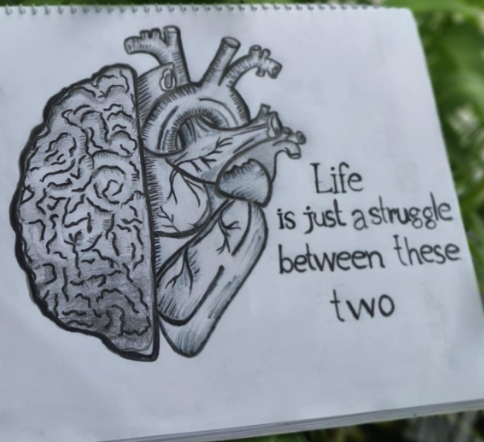 Life
is just a struggle
between these
two